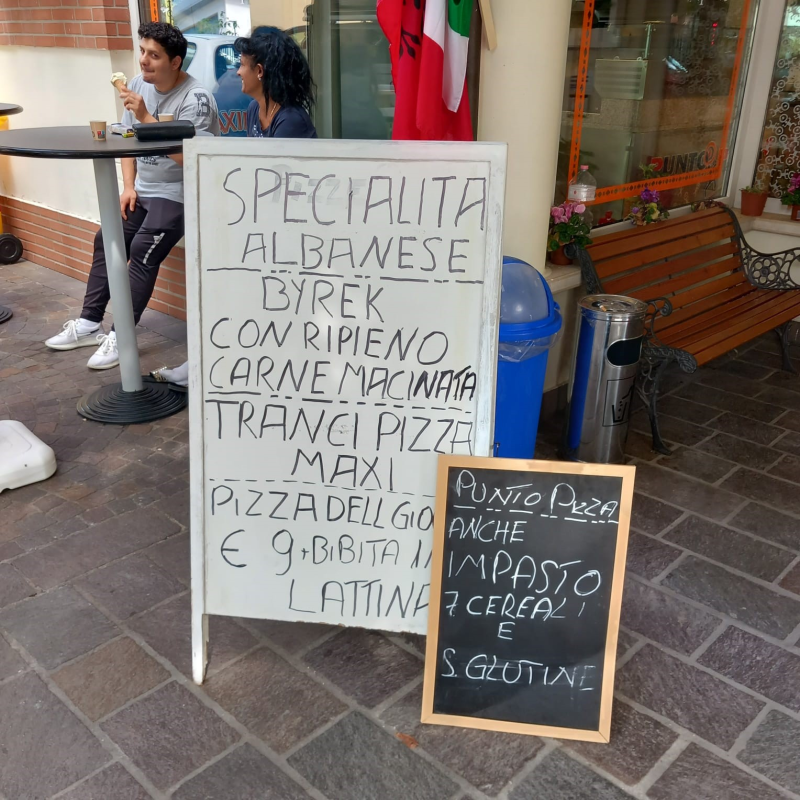 SPECIALITA
ALBANESE
BYREK
CON RIPIENO
CARNE MACINATA
TRANCI PIZZA
MAXI
PIZZA DELL GIO
€ 9+BIBITA IN
LATTINA
PUNTO PIZZA
ANCHE
IMPASTO
7 CEREALI
E
S. GLUTINE
PUNTO